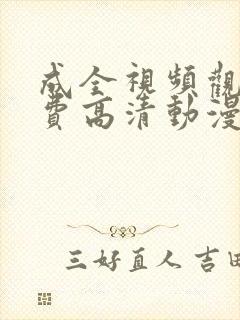 成全視頻觀
費高清動漫
三好直人 吉田